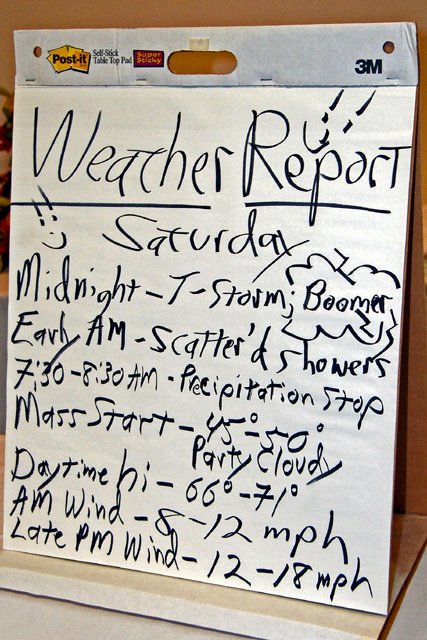 Post-it Self-Stick Table Top Pad Super Sticky 3M
Weather Report
Saturday
Midnight - T-Storm; Boomer
Early AM - Scatter'd showers
7:30 - 8:30 AM - Precipitation Stop
Mass Start - 45° - 50°
Party Cloudy
Daytime hi - 66° - 71°
AM Wind - 8 - 12 mph
Late PM Wind - 12 - 18 mph